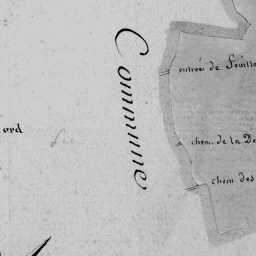 Commune
entrée de Feuillo
ord
chem. de la De
chem. des